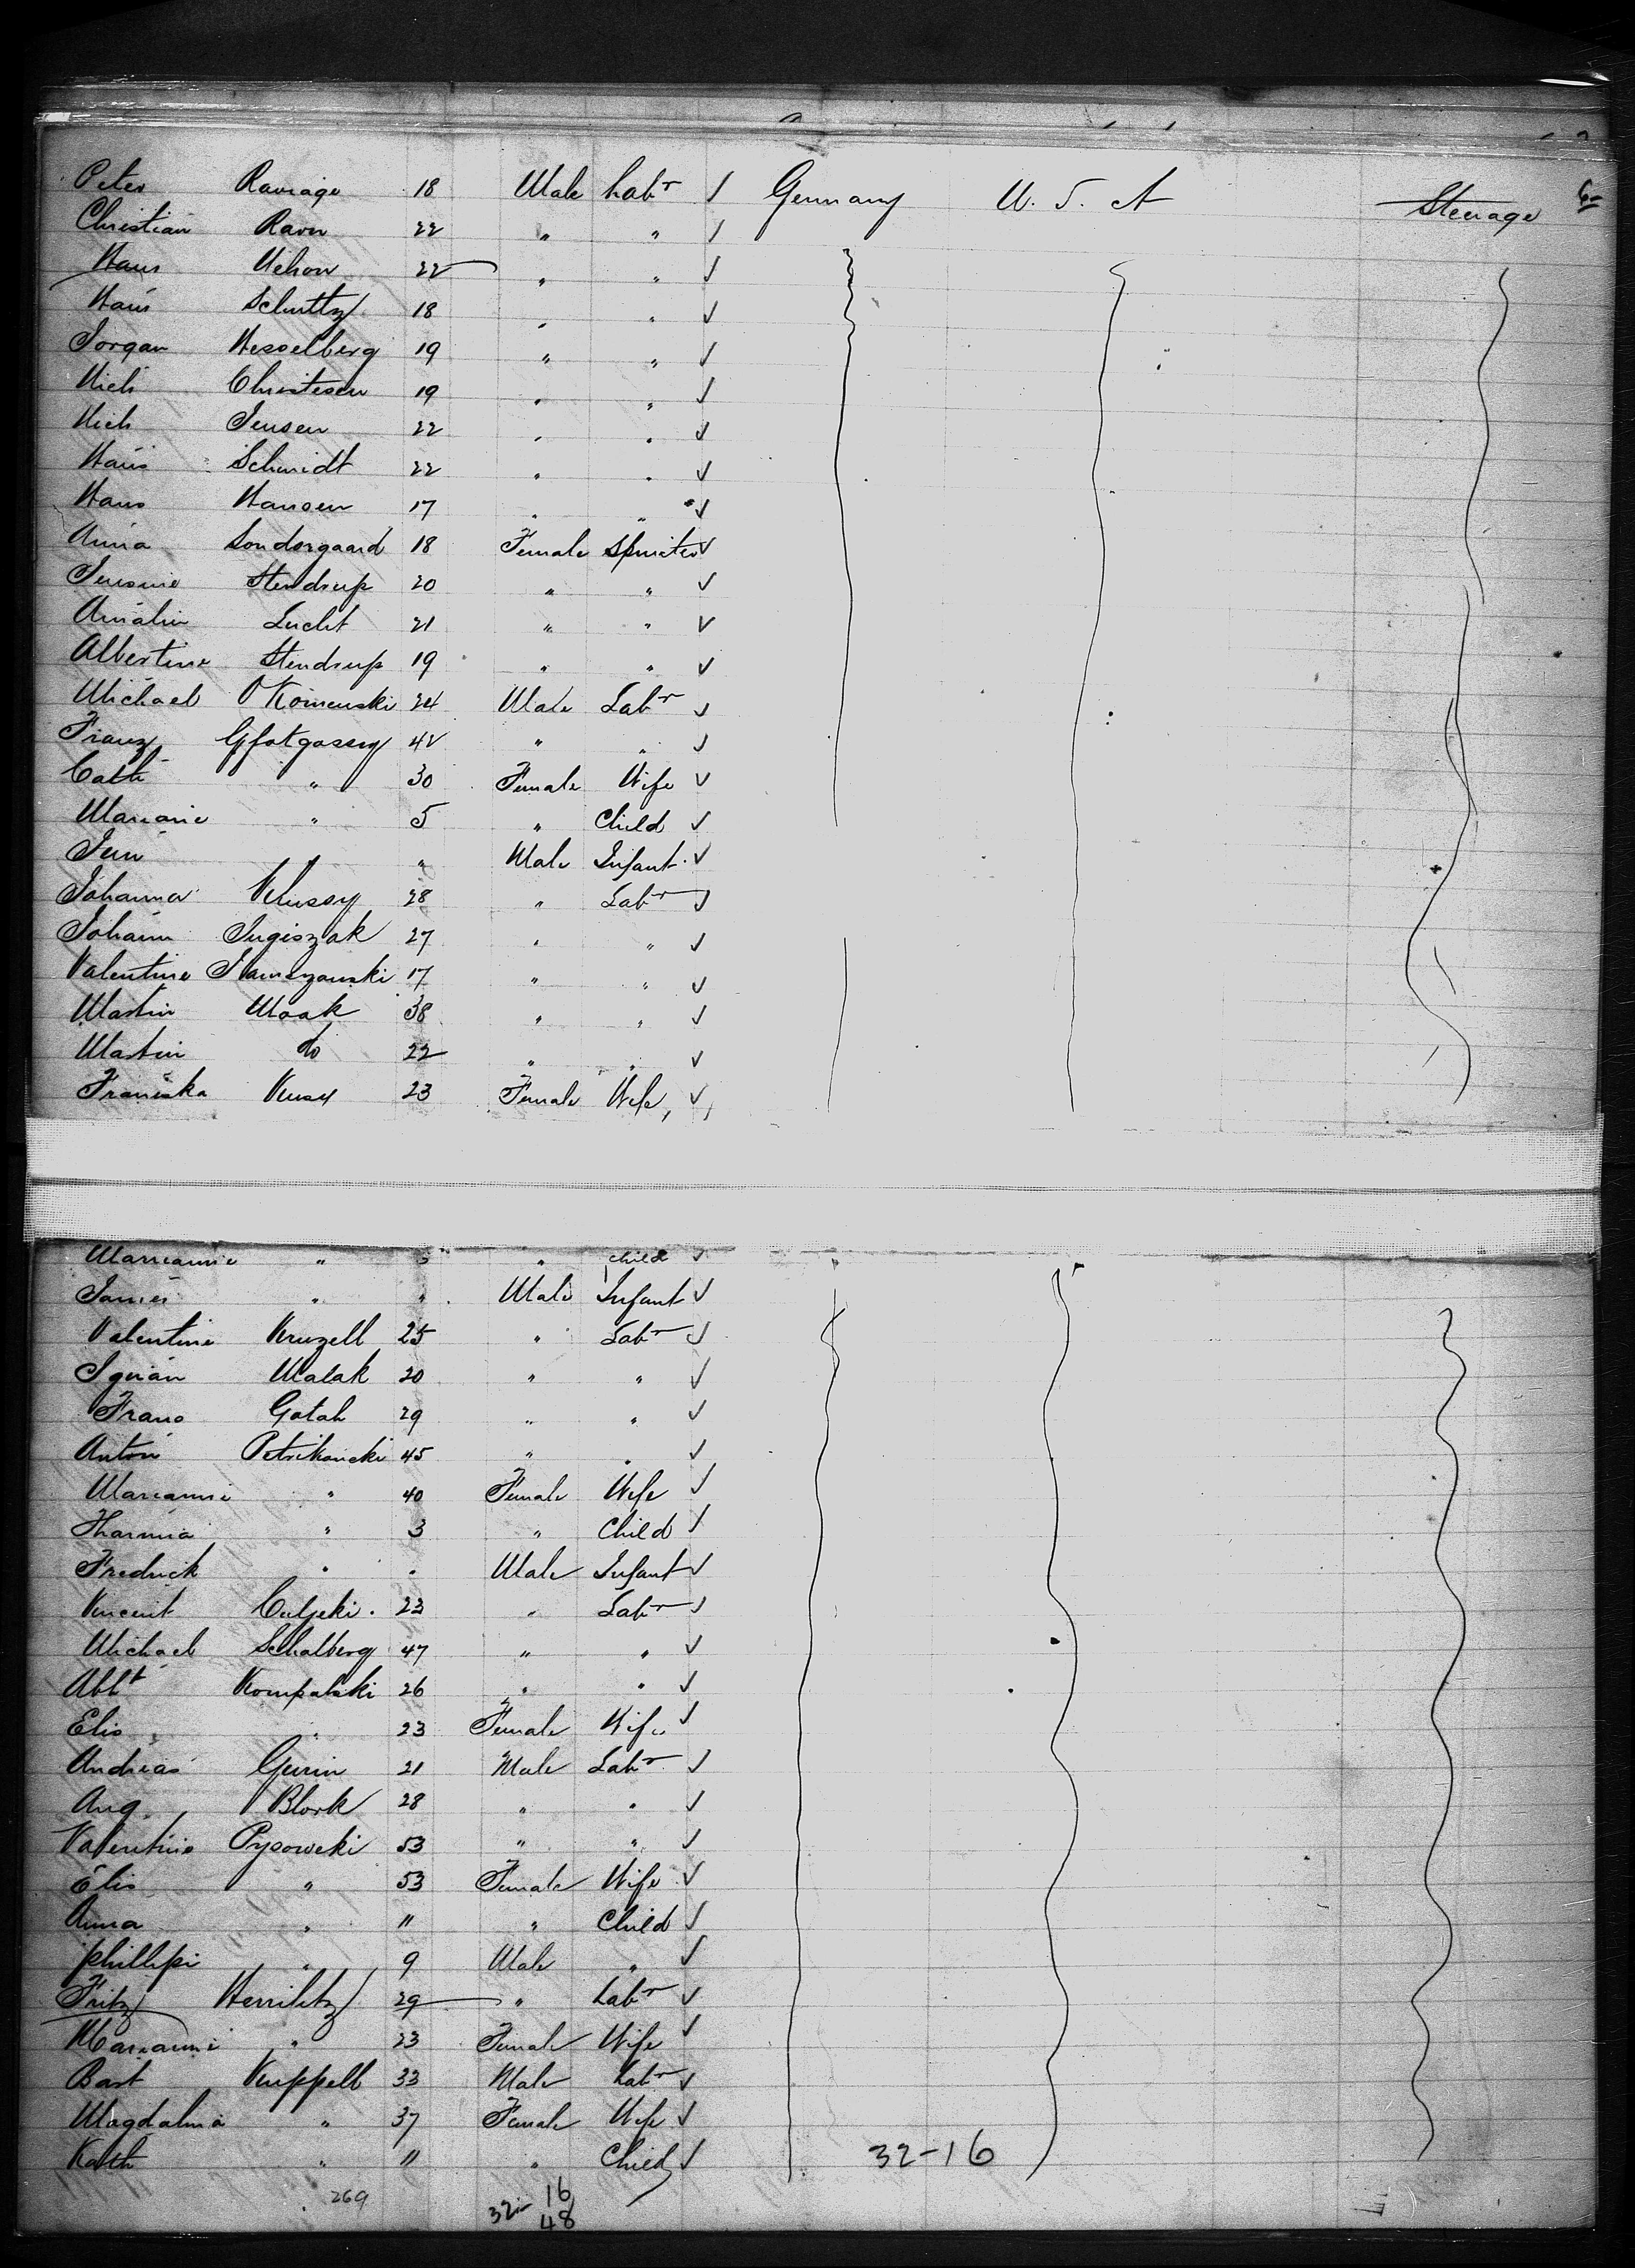 Peter 18 Male Labr Germany U. S. A Steerage
Christian Ravn 22 " "
Hans 22 " "
Hans Schultz 18 " "
Jorgan Hesselberg 19 " "
Nich Christesen 19 " "
Nich Jensen 22 " "
Hans Schmidt 22 " "
Hans Hansen 17 " "
Anna Sondergaard 18 Female Spinster
Stendrup 20 " "
Amalia Lucht 21 " "
Albertine Stendrup 19 " "
Michael 24 Male Labr
Franz 42 " "
Cath " 30 Female Wife
Mariane " 5 " Child
" " Male Infant
Johanna Klussy 28 " Labr
Johann Jugiszak 27 " "
Valentine 17 " "
Martin Maak 38 " "
Martin do 22 " "
Franiska 23 Female Wife
Marianne " " Child
James " " Male Infant
Valentine Kruzell 25 " Labr
Malak 20 " "
Frans Gatah 29 " "
Anton 45 " "
Marianne " 40 Female Wife
" 3 " Child
Fredrick " " Male Infant
Vincent 23 " Labr
Michael Schalberg 47 " "
Kompalski 26 " "
Elis " 23 Female Wife
Andreas Gurin 21 Male Labr
Aug Blork 28 " "
Valentine Pysowcki 53 " "
Elis " 53 Female Wife
Anna " 11 " Child
Phillipi " 9 Male "
Fritz Herrilitz 29 " Labr
Marianne " 23 Female Wife
Bart Kuppell 33 Male Labr
Magdalina " 37 Female Wife
Kath " 11 " Child 32-16
269 32 16
48